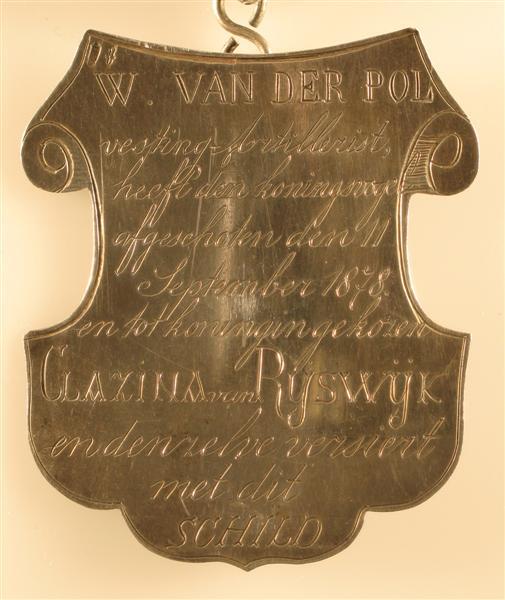 W. VAN DER POL
vesting-artillerist,
heeft den koningsvogel
afgeschoten den 11
September 1878
en tot koningin gekozen
CLAZINA van RIJSWIJK
en denzelve versiert
met dit
SCHILD